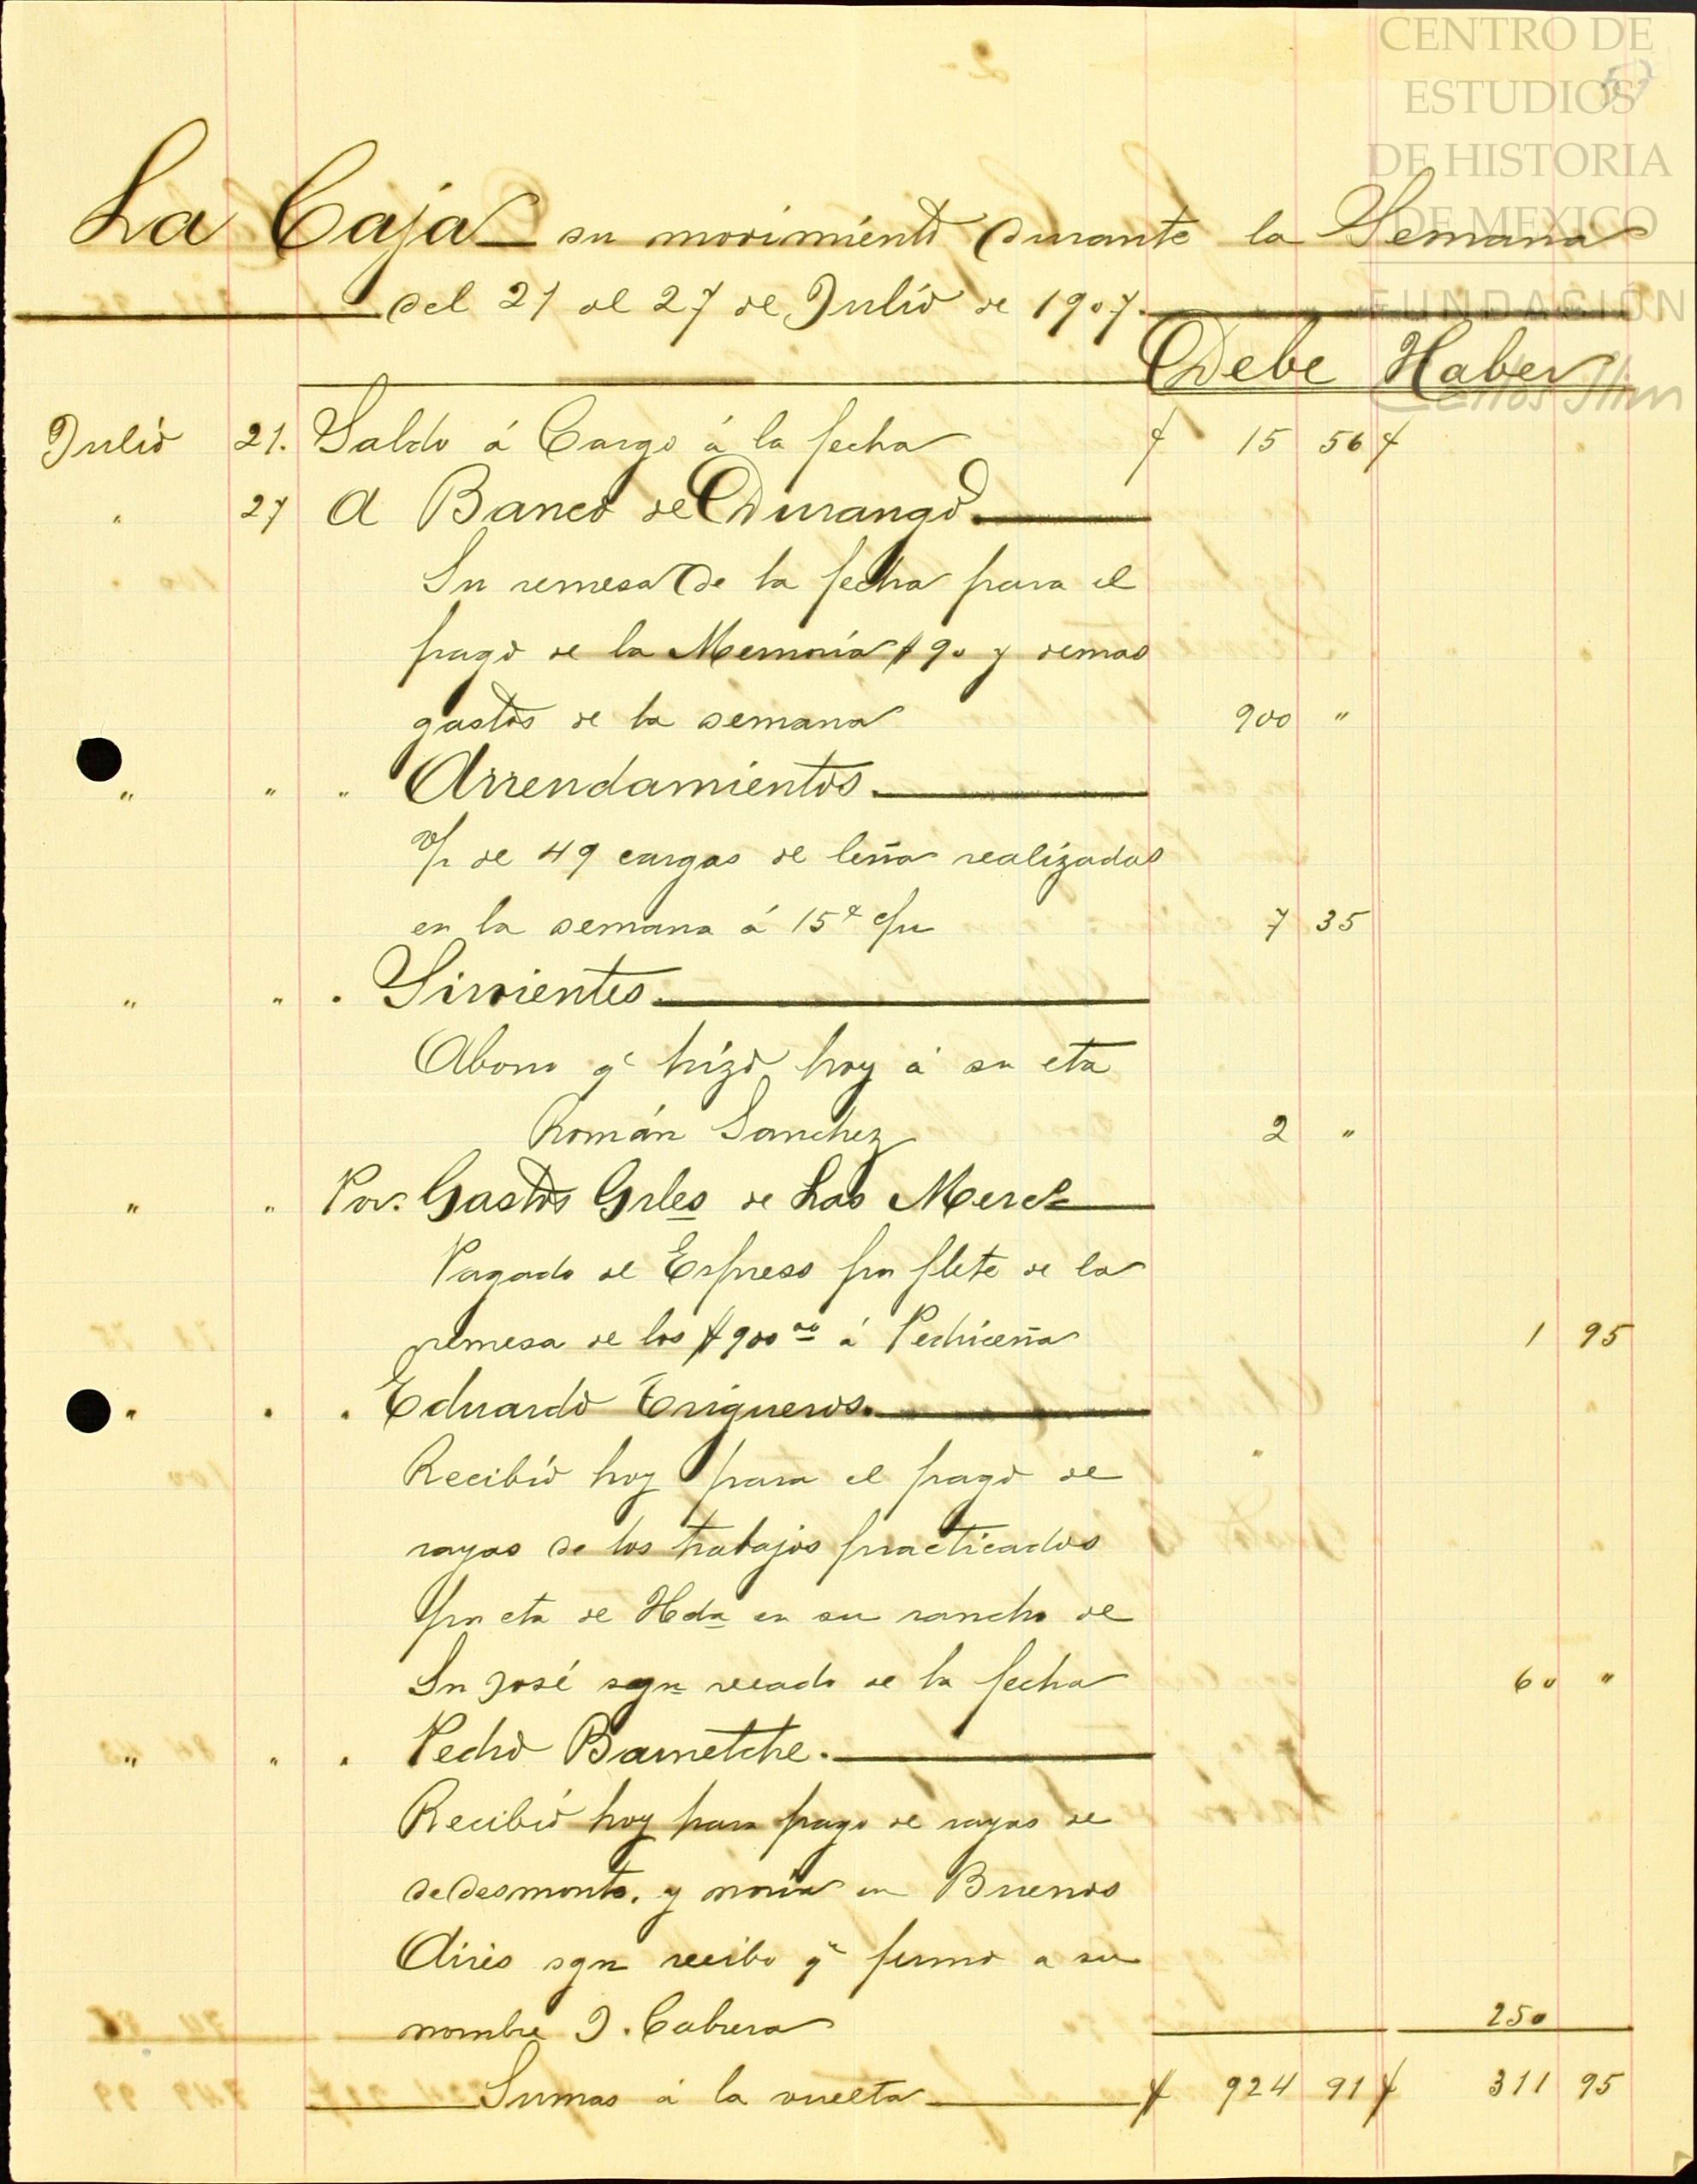 CENTRO DE
ESTUDIOS
DE HISTORIA
DE MEXICO
FUNDACIÓN
Carlos Slim
La Caja su movimiento durante la Semana
del 21 al 27 de Julio de 1907.
Debe Haber
Julio 21. Saldo á Cargo á la fecha $ 15 56 $
" 27 A Banco de Durango.
Su remesa de la fecha para el
pago de la Memoria # 90 y demas
gastos de la semana 900 "
" " " Arrendamientos.
v/r de 49 cargas de leña realizadas
en la semana á 15¢ c/u 7 35
" " " Sirvientes.
Abono q' hizo hoy á su cta
Román Sanchez 2 "
" " Por. Gastos Grles de Las Merds
Pagado al Expreso por flete de la
remesa de los $900 oo á Pedriceña 1 95
" " " Eduardo Trigueros.
Recibió hoy para el pago de
rayas de los trabajos practicados
por cta de Hda en su rancho de
Sn José sgn recado de la fecha 60 "
" " " Pedro Barnetche.
Recibió hoy para pago de rayas de
de desmonte. y noria en Buenos
Aires sgn recibo q' firmó a su
nombre J. Cabrera 250
Sumas á la vuelta $ 924 91 $ 311 95